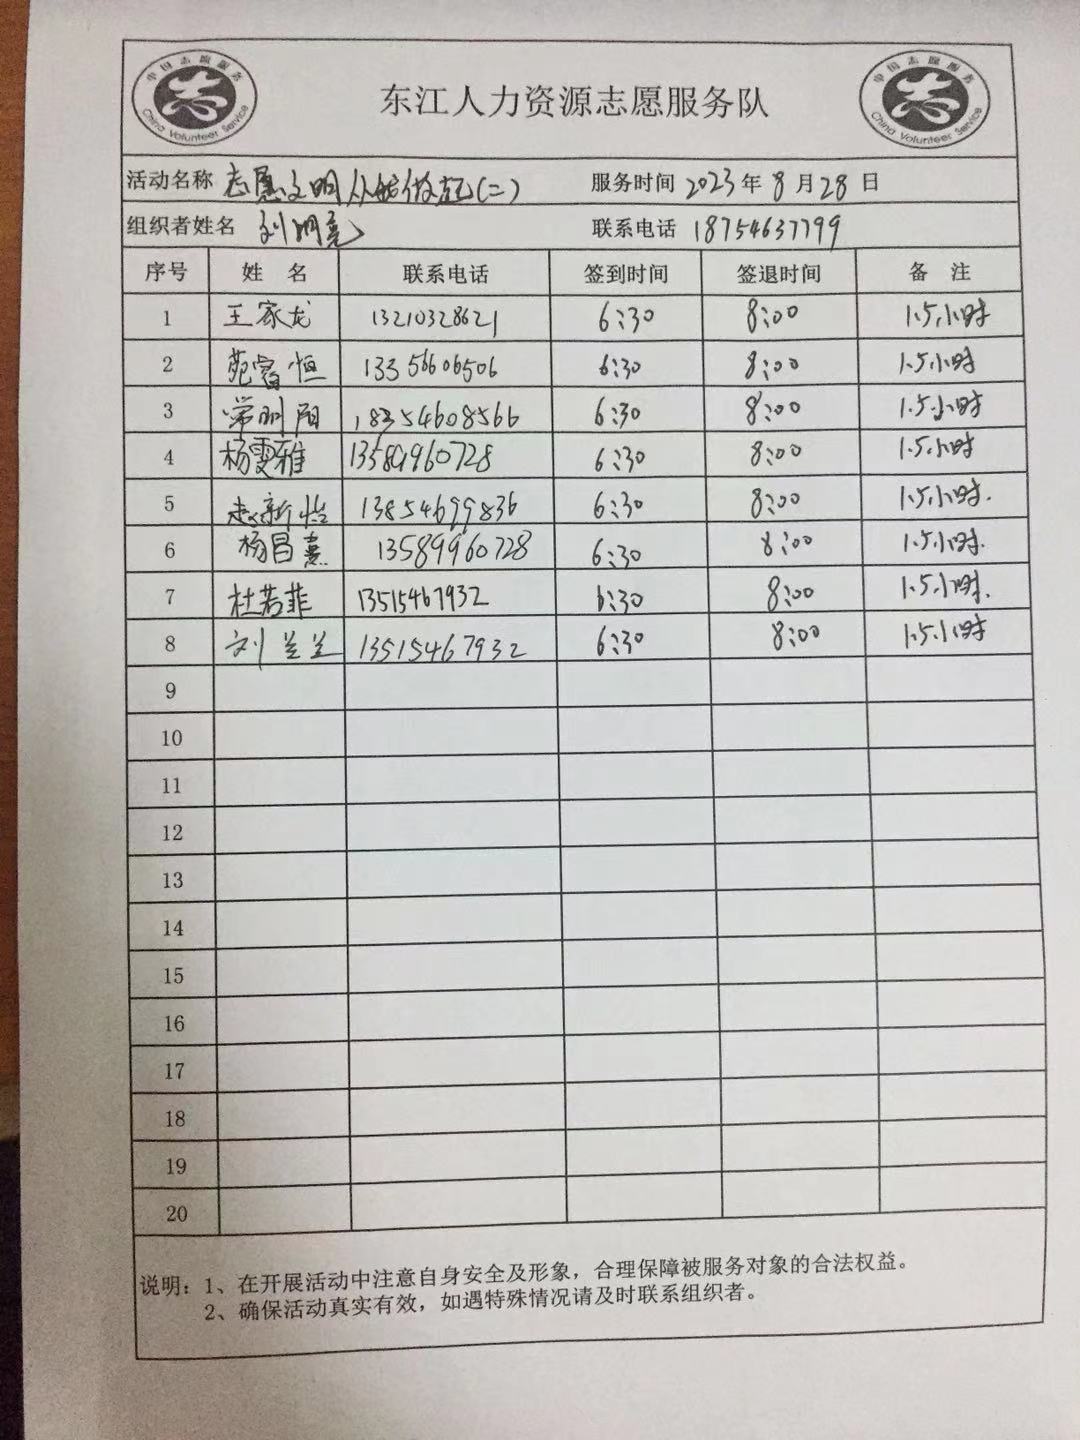 中国志愿服务
China Volunteer Service
东江人力资源志愿服务队
中国志愿服务
China Volunteer Service
活动名称 志愿文明从始做起(二) 服务时间 2023年8月28日
组织者姓名 刘明亮 联系电话 18754637799
序号 姓 名 联系电话 签到时间 签退时间 备 注
1 王家龙 13210328621 6:30 8:00 1.5小时
2 苑睿恒 13356606506 6:30 8:00 1.5小时
3 常明阳 18354608566 6:30 8:00 1.5小时
4 杨雯雅 13589960728 6:30 8:00 1.5小时
5 赵新怡 13854699836 6:30 8:00 1.5小时.
6 杨昌熹 13589960728 6:30 8:00 1.5小时.
7 杜若菲 13515467932 6:30 8:00 1.5小时.
8 刘兰兰 13515467932 6:30 8:00 1.5小时
9
10
11
12
13
14
15
16
17
18
19
20
说明：1、在开展活动中注意自身安全及形象，合理保障被服务对象的合法权益。
2、确保活动真实有效，如遇特殊情况请及时联系组织者。